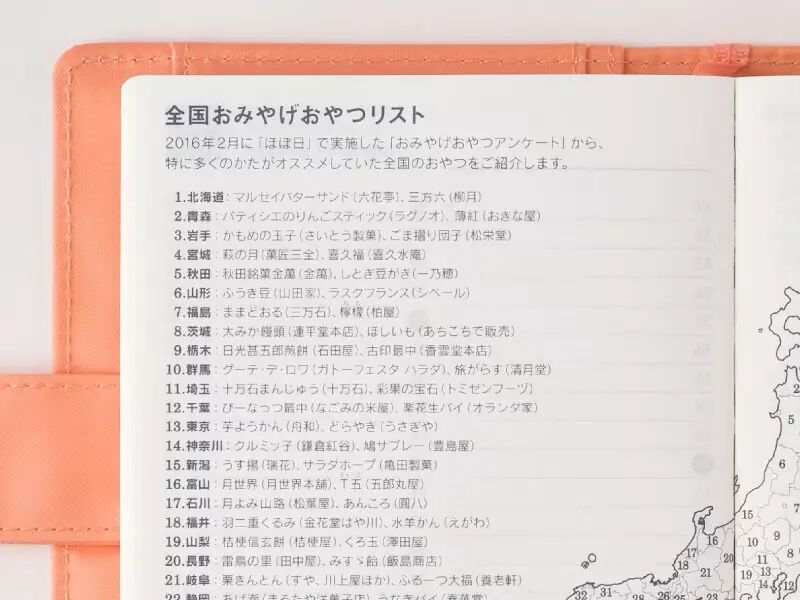 全国おみやげおやつリスト
2016年2月に「ほぼ日」で実施した「おみやげおやつアンケート」から、
特に多くのかたがオススメしていた全国のおやつをご紹介します。
1.北海道：マルセイバターサンド（六花亭）、三方六（柳月）
2.青森：パティシエのりんごスティック（ラグノオ）、薄紅（おきな屋）
3.岩手：かもめの玉子（さいとう製菓）、ごま摺り団子（松栄堂）
4.宮城：萩の月（菓匠三全）、喜久福（喜久水庵）
5.秋田：秋田銘菓金萬（金萬）、しとぎ豆がき（一乃穂）
6.山形：ふうき豆（山田家）、ラスクフランス（シベール）
7.福島：ままどおる（三万石）、檸檬（柏屋）
8.茨城：大みか饅頭（運平堂本店）、ほしいも（あちこちで販売）
9.栃木：日光甚五郎煎餅（石田屋）、古印最中（香雲堂本店）
10.群馬：グーテ・デ・ロワ（ガトーフェスタ ハラダ）、旅がらす（清月堂）
11.埼玉：十万石まんじゅう（十万石）、彩果の宝石（トミゼンフーヅ）
12.千葉：ぴーなっつ最中（なごみの米屋）、楽花生パイ（オランダ家）
13.東京：芋ようかん（舟和）、どらやき（うさぎや）
14.神奈川：クルミッ子（鎌倉紅谷）、鳩サブレー（豊島屋）
15.新潟：うす揚（瑞花）、サラダホープ（亀田製菓）
16.富山：月世界（月世界本舗）、T五（五郎丸屋）
17.石川：月よみ山路（松葉屋）、あんころ（圓八）
18.福井：羽二重くるみ（金花堂はや川）、水羊かん（えがわ）
19.山梨：桔梗信玄餅（桔梗屋）、くろ玉（澤田屋）
20.長野：雷鳥の里（田中屋）、みすゞ飴（飯島商店）
21.岐阜：栗きんとん（すや、川上屋ほか）、ふるーつ大福（養老軒）
22.静岡：あげ潮（まるたや洋菓子店）、うなぎパイ（春華堂）
2
5
6
7
15
16
8
17
9
10
18
20
11
21
13
19
14
12
32
31